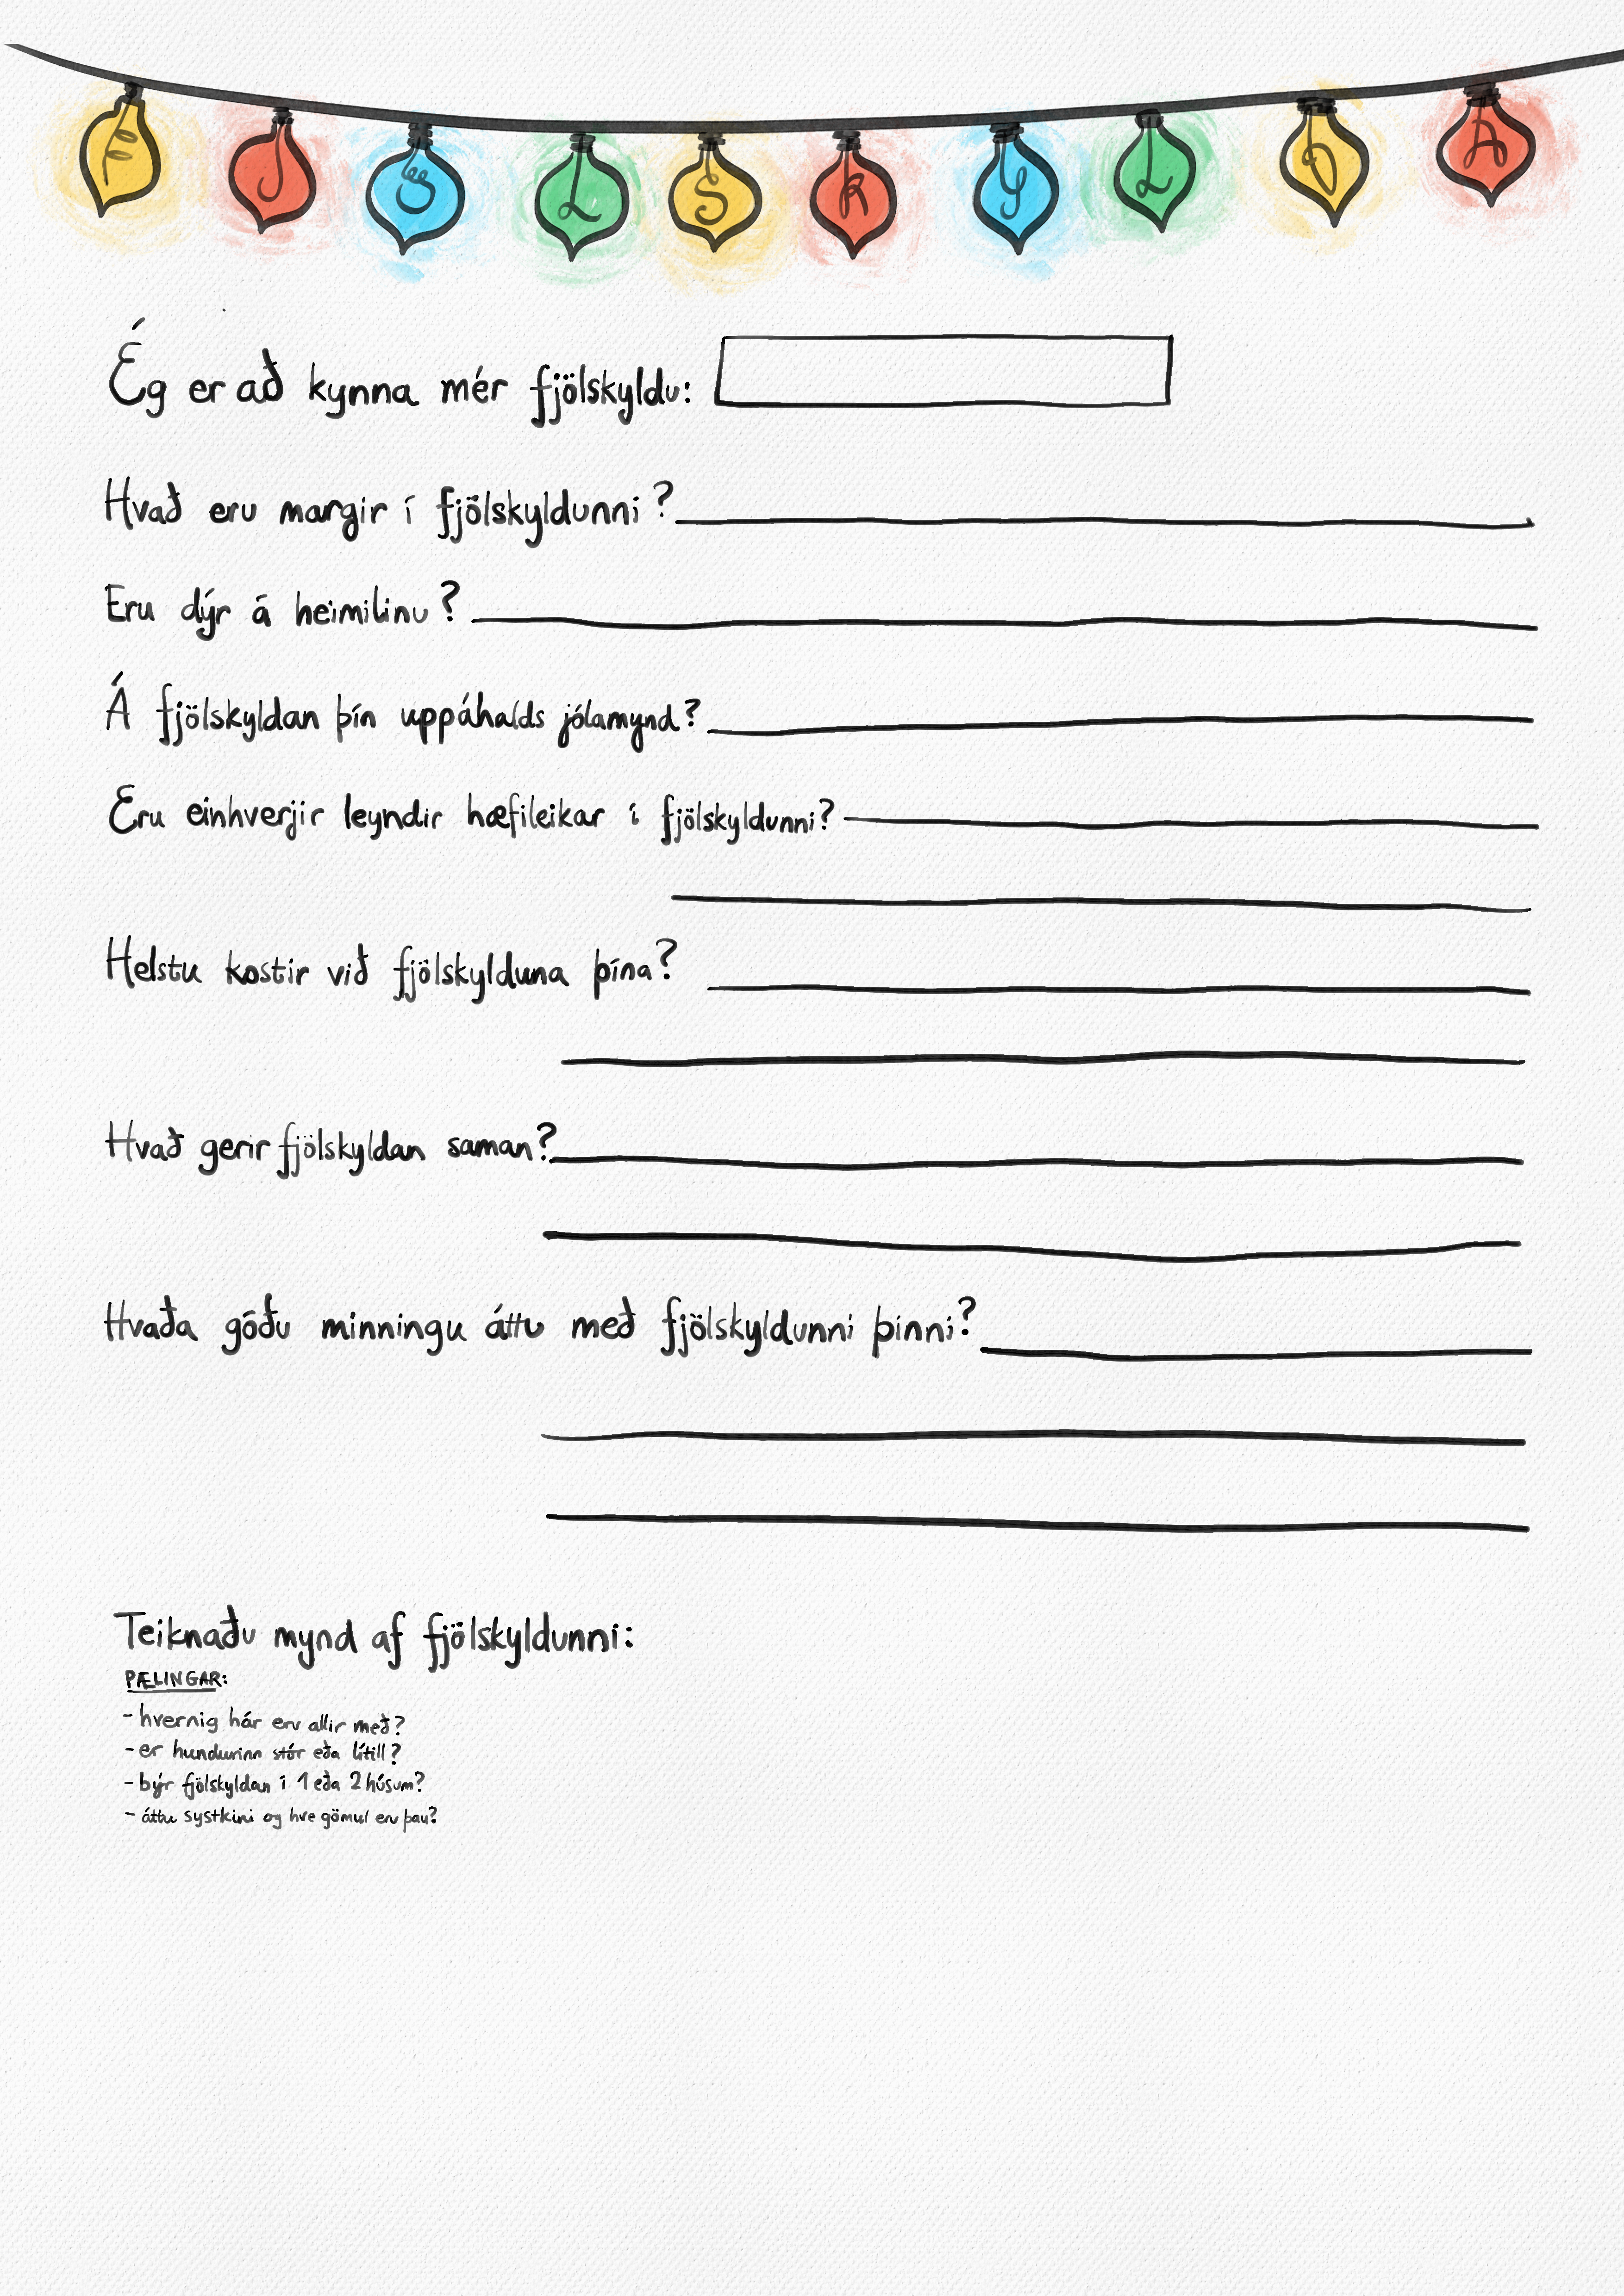 FJÖLSKYLDA
Ég er að kynna mér fjölskyldu:
Hvað eru margir í fjölskyldunni?
Eru dýr á heimilinu?
Á fjölskyldan þín uppáhalds jólamynd?
Eru einhverjir leyndir hæfileikar í fjölskyldunni?
Helstu kostir við fjölskylduna þína?
Hvað gerir fjölskyldan saman?
Hvaða góðu minningu áttu með fjölskyldunni þinni?
Teiknaðu mynd af fjölskyldunni:
PÆLINGAR:
- hvernig hár eru allir með?
- er hundurinn stór eða lítill?
- býr fjölskyldan í 1 eða 2 húsum?
- áttu systkini og hve gömul eru þau?